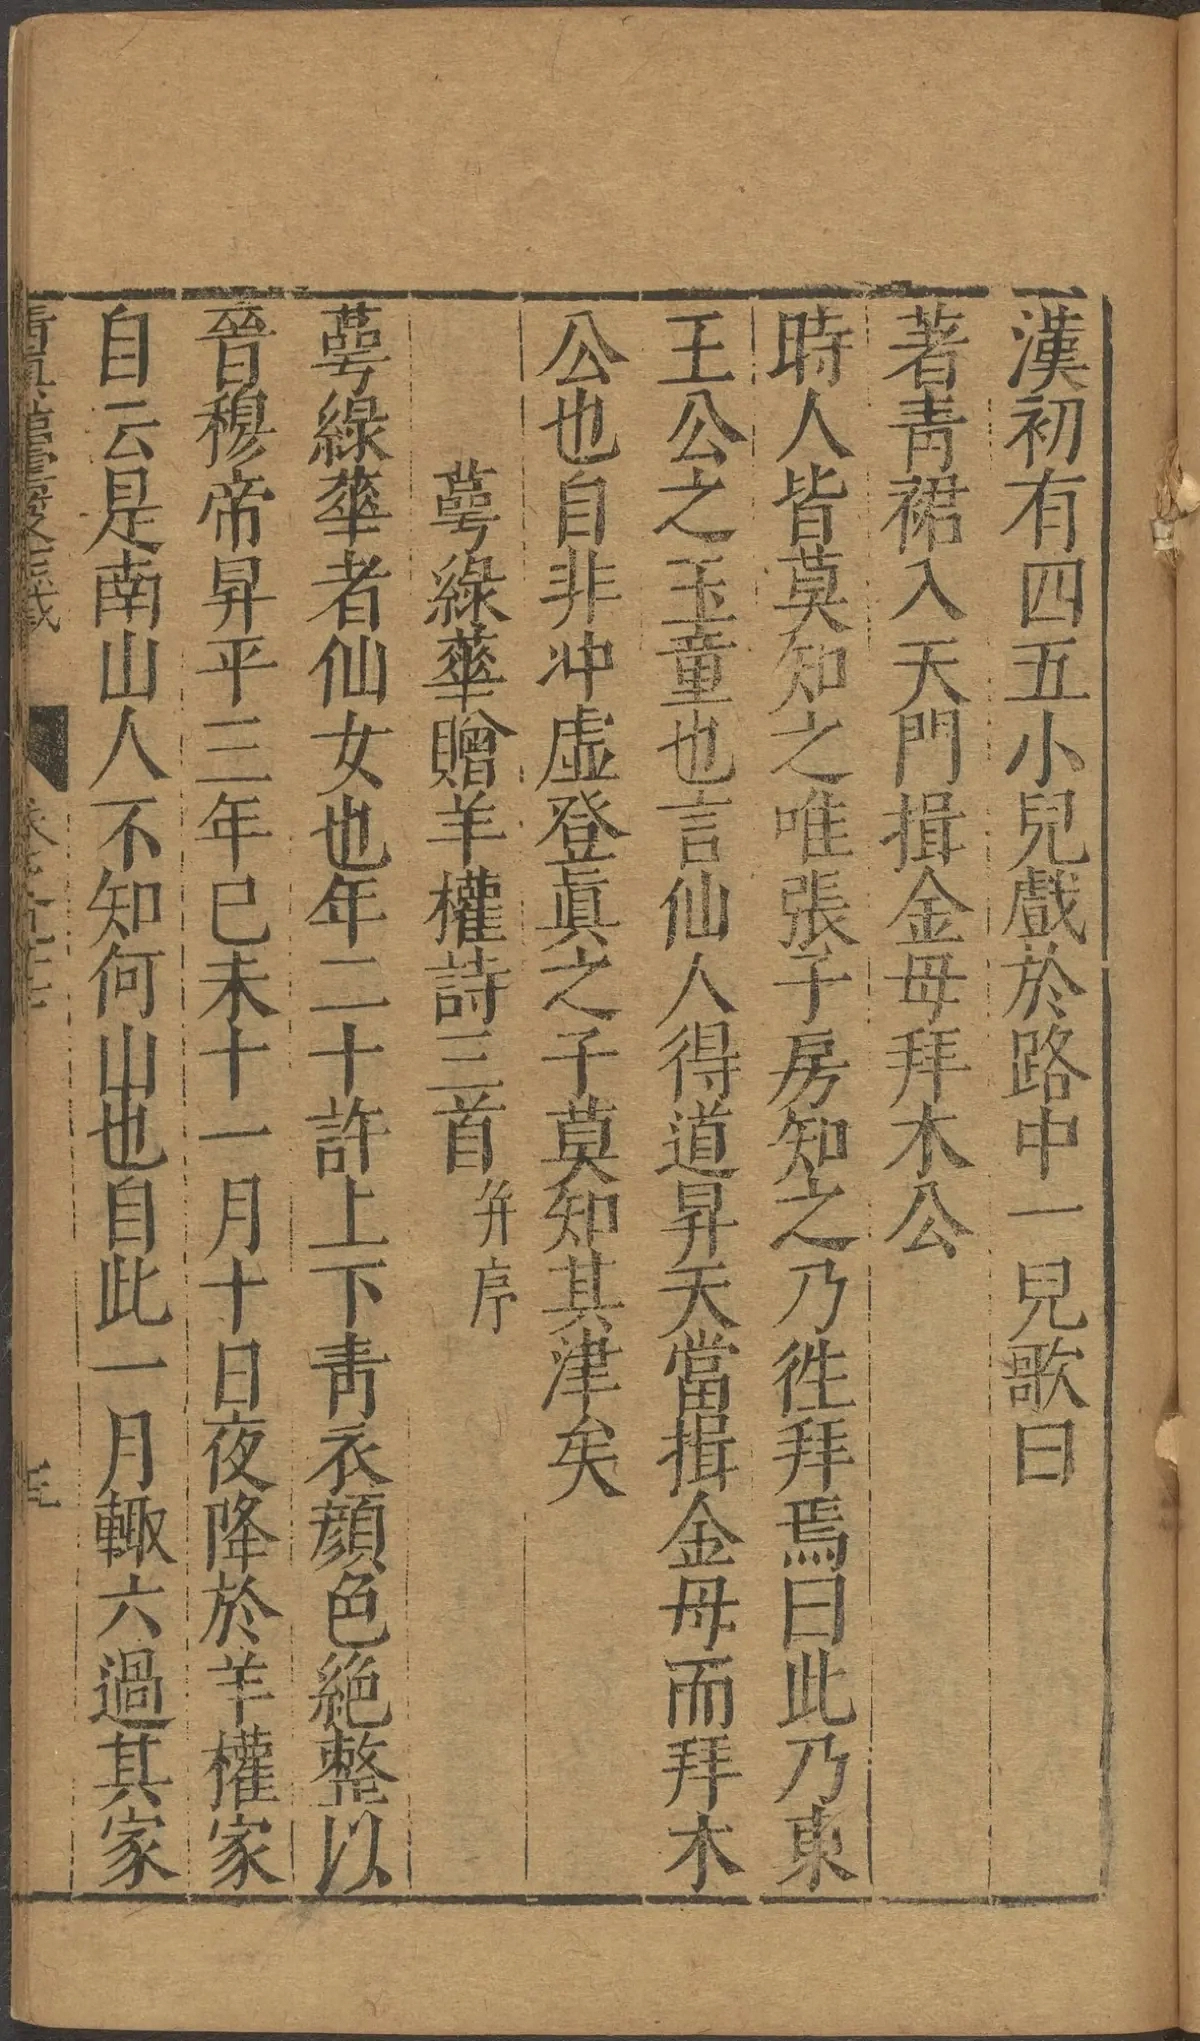 漢初有四五小兒戲於路中一兒歌曰
著青裙入天門揖金母拜木公
時人皆莫知之唯張子房知之乃徃拜焉曰此乃東
王公之玉童也言仙人得道昇天當揖金母而拜木
公也自非冲虛登眞之子莫知其津矣
萼綠華贈羊權詩三首并序
萼綠華者仙女也年二十許上下青衣顔色絕整以
晉穆帝昇平三年巳未十一月十日夜降於羊權家
自云是南山人不知何山也自此一月輙六過其家